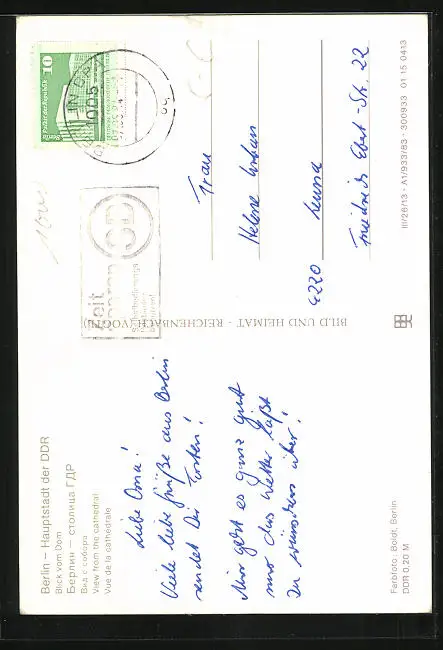 Berlin – Hauptstadt der DDR
Blick vom Dom
Берлин – столица ГДР
Вид с собора
View from the cathedral
Vue de la cathédrale
Liebe Oma!
Viele liebe Grüße aus Berlin
sendet Dir Torsten!
Mir geht es ganz gut
nur das Wetter läßt
zu wünschen über!
Farbfoto: Boldt, Berlin
DDR 0,20 M
BILD UND HEIMAT - REICHENBACH (VOGTL)
10
Palast der Republik
DDR
1085
Zeit
sparen
SB
Frau
Helene
4220 Leuna
Friedrich Ebert-Str. 22
III/26/13 · A1/933/83 · 300933 01 15 0413